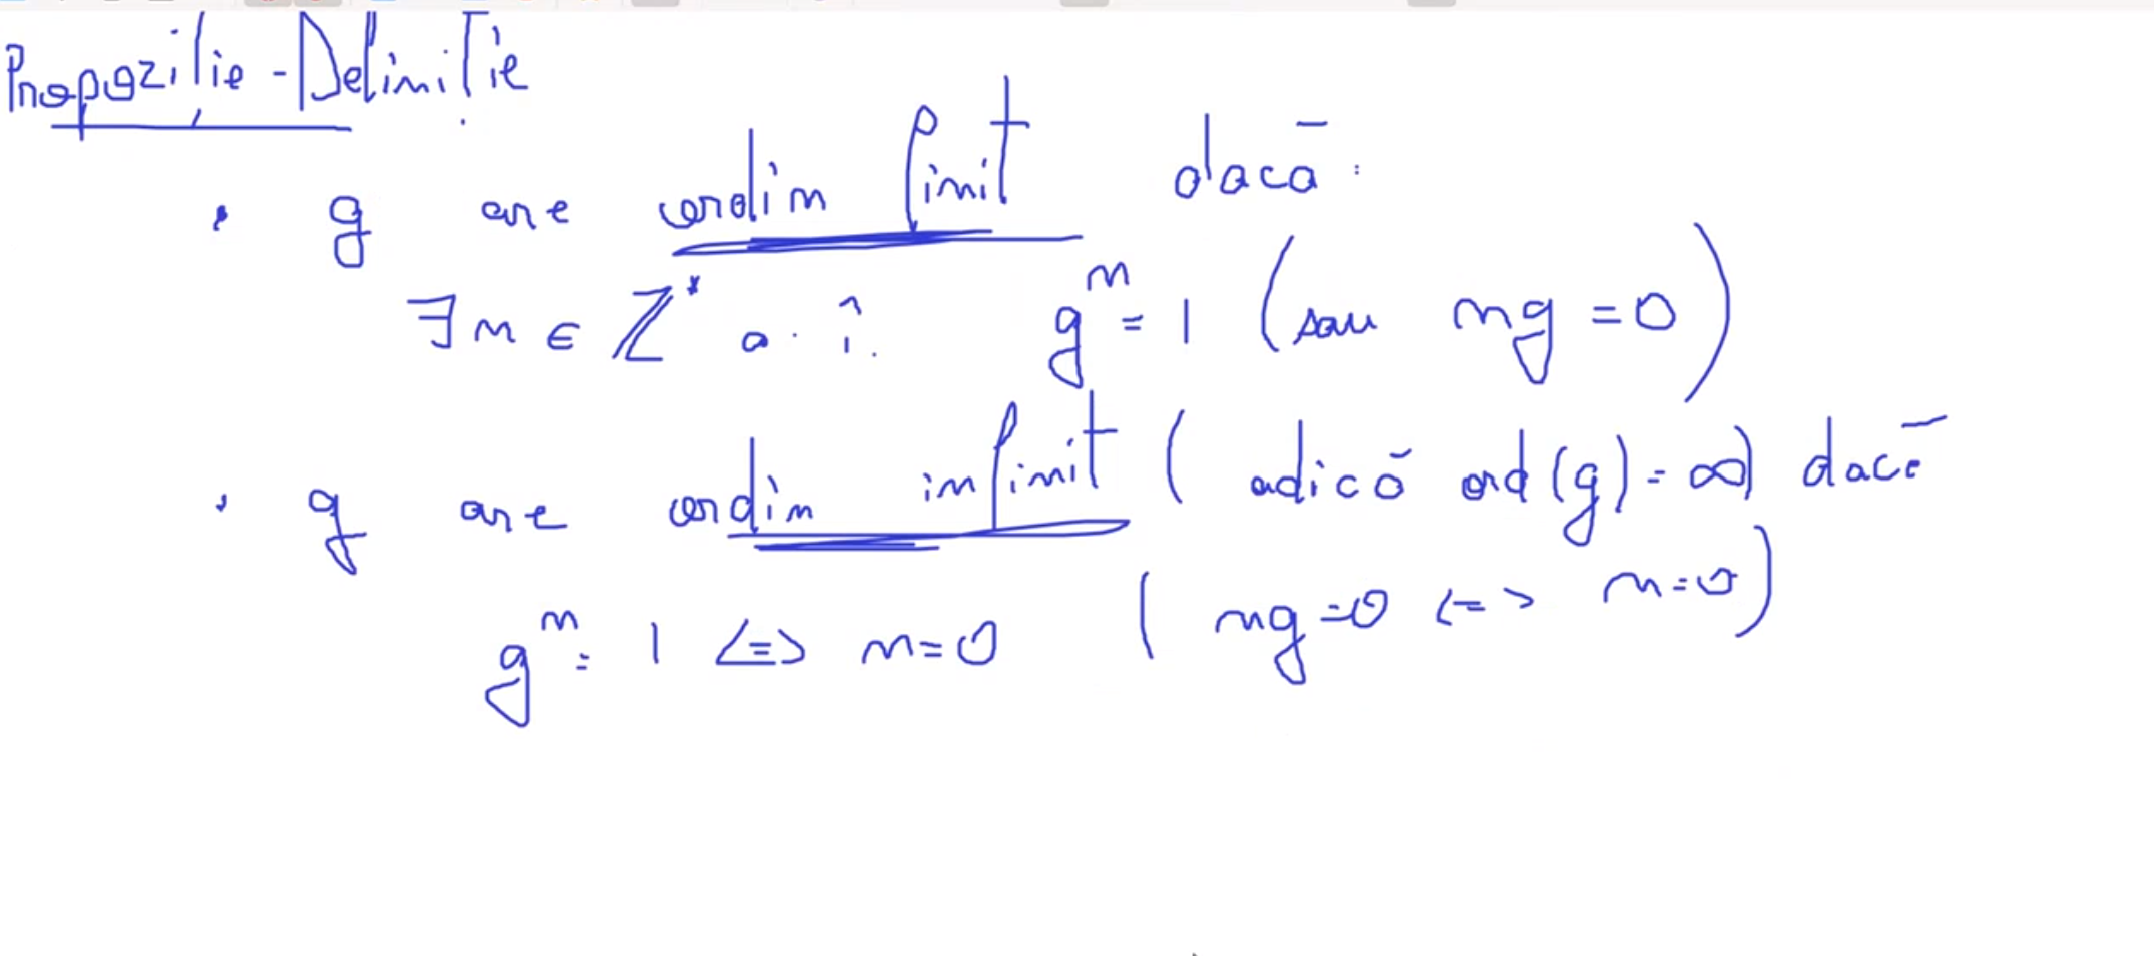 Propoziție - Definiție
• g are ordin finit dacă:
∃ n ∈ ℤ* a. î. gⁿ = 1 (sau ng = 0)
• g are ordin infinit (adică ord(g) = ∞) dacă
gⁿ = 1 <=> n = 0 (ng = 0 <=> n = 0)